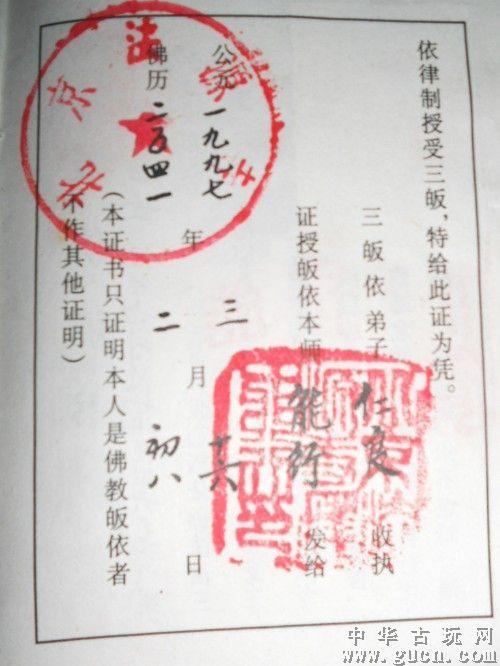 依律制授受三皈，特给此证为凭。
三皈依弟子仁收执
证授皈依本师能行发给
公元一九九七 三 十六
年 月 日
佛历二五四一 二 初八
（本证书只证明本人是佛教皈依者
不作其他证明）
北京法源寺
中华古玩网
www.gucn.com